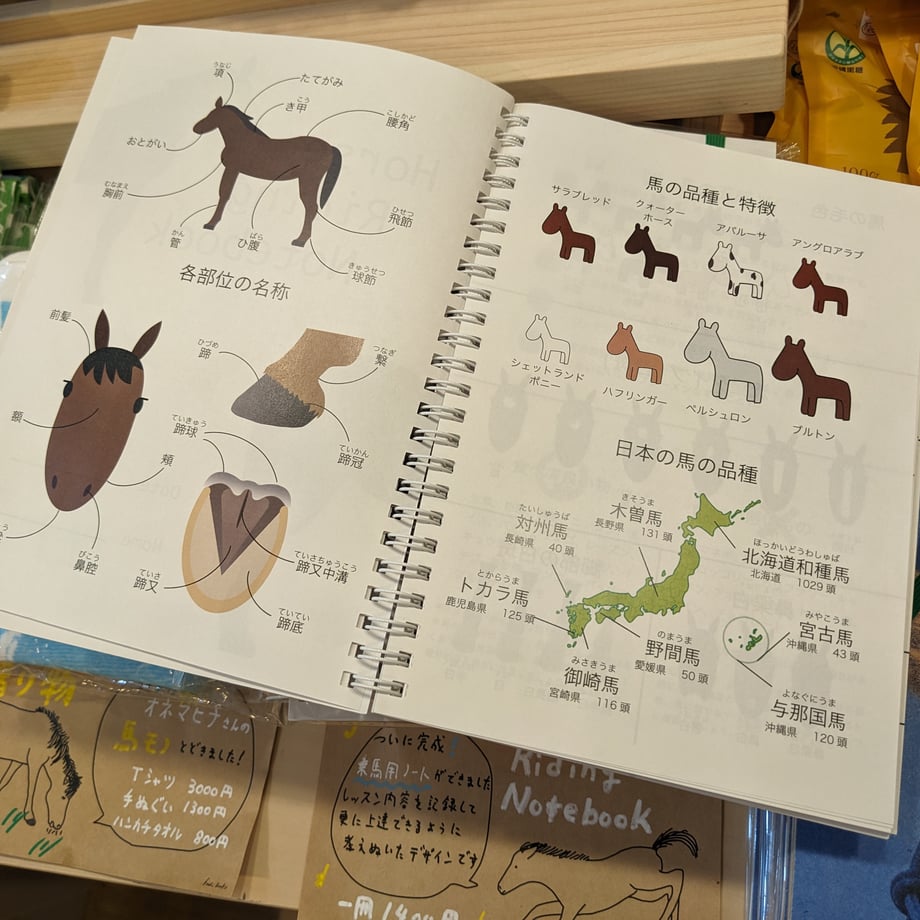 うなじ
項
たてがみ
こう
き甲
こしかど
腰角
おとがい
むなまえ
胸前
かん
管
ばら
ひ腹
ひせつ
飛節
きゅうせつ
球節
各部位の名称
前髪
額
頬
びこう
鼻腔
ひづめ
蹄
つなぎ
繋
ていかん
蹄冠
ていきゅう
蹄球
ていさ
蹄叉
ていさちゅうこう
蹄叉中溝
ていてい
蹄底
馬の品種と特徴
サラブレッド
クォーター
ホース
アパルーサ
アングロアラブ
シェットランド
ポニー
ハフリンガー
ペルシュロン
ブルトン
日本の馬の品種
たいしゅうば
対州馬
長崎県 40頭
きそうま
木曽馬
長野県 131頭
ほっかいどうわしゅば
北海道和種馬
北海道 1029頭
とからうま
トカラ馬
鹿児島県 125頭
のまうま
野間馬
愛媛県 50頭
みさきうま
御崎馬
宮崎県 116頭
みやこうま
宮古馬
沖縄県 43頭
よなぐにうま
与那国馬
沖縄県 120頭
100%
り物
オネマヒナさんの
馬モノ とどきました!
Tシャツ 3000円
手ぬぐい 1300円
ハンカチタオル 800円
ついに完成!
乗馬用ノートができました
レッスン内容を記録して
更に上達できるように
考えぬいたデザインです
Riding
Notebook